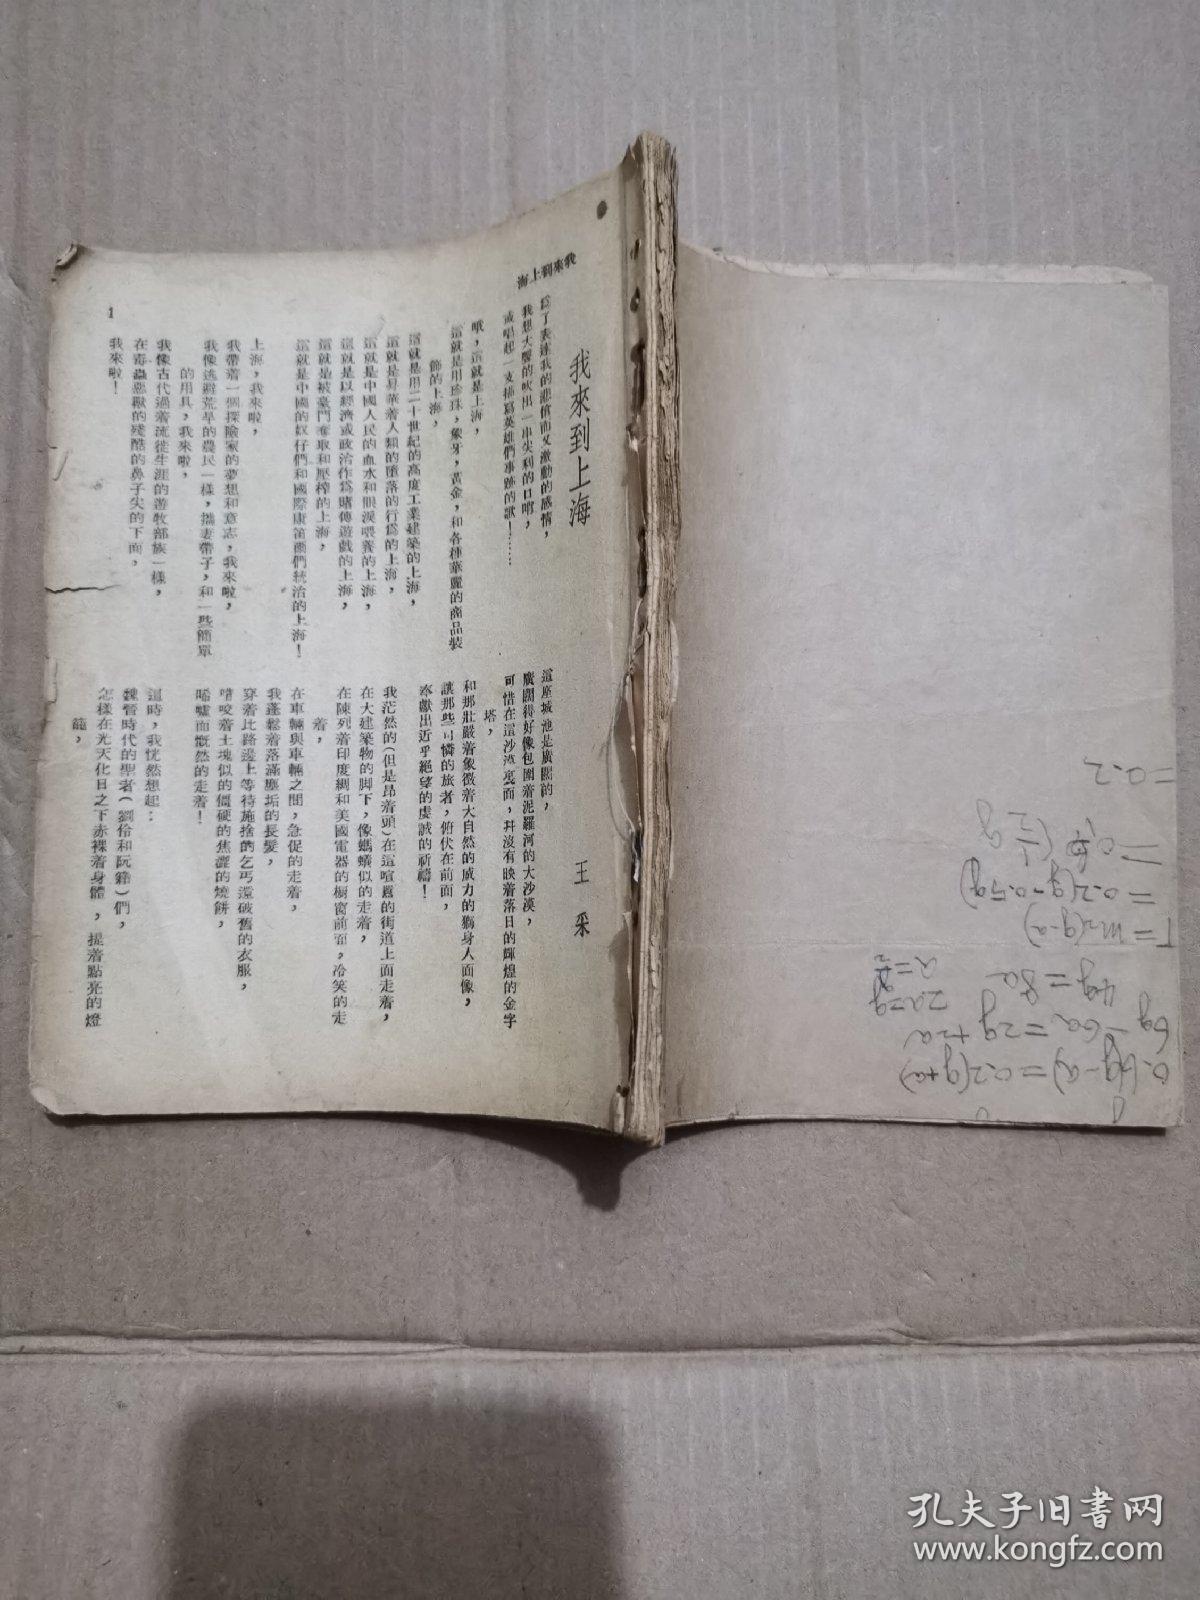 我來到上海
我來到上海
王采
爲了表達我的悲憤而又激動的感情，
我想大聲的吹出一串尖利的口哨，
或唱起一支描寫英雄們事跡的歌！……
哦，這就是上海，
這就是用珍珠，象牙，黃金，和各種華麗的商品裝
飾的上海，
這就是用二十世紀的高度工業建築的上海，
這就是昇華着人類的墮落的行爲的上海，
這就是中國人民的血水和眼淚喂養的上海，
這就是以經濟或政治作爲賭傅遊戲的上海，
這就是被豪門奪取和壓榨的上海，
這就是中國的奴仔們和國際康笛爾們統治的上海！
上海，我來啦，
我帶着一個探險家的夢想和意志，我來啦，
我像逃避荒旱的農民一樣，攜妻帶子，和一些簡單
的用具，我來啦，
我像古代過着流徙生涯的游牧部族一樣，
在毒蟲惡獸的殘酷的鼻子尖的下面，
我來啦！
這座城池是廣闊的，
廣闊得好像包圍着泥羅河的大沙漠，
可惜在這沙漠裏面，幷沒有映着落日的輝煌的金字
塔，
和那壯嚴着象徵着大自然的威力的獅身人面像，
讓那些可憐的旅者，俯伏在前面，
奉獻出近乎絕望的虔誠的祈禱！
我茫然的（但是昂着頭）在這喧囂的街道上面走着，
在大建築物的脚下，像螞蟻似的走着，
在陳列着印度綢和美國電器的橱窗前面，冷笑的走
着，
在車輛與車輛之間，急促的走着，
我蓬鬆着落滿塵垢的長髮，
穿着比路邊上等待施捨的乞丐還破舊的衣服，
嚼咬着土塊似的僵硬的焦灑的燒餅，
唏噓而慨然的走着！
這時，我恍然想起：
魏晉時代的聖者（劉伶和阮籍）們，
怎樣在光天化日之下赤裸着身體，提着點亮的燈
籠，
1
6g-6a=2g+2a
4g=8a
2a=g
T=m₂(g-a)
=0.2(g-0.5g)
=0.2
孔夫子旧书网
www.kongfz.com